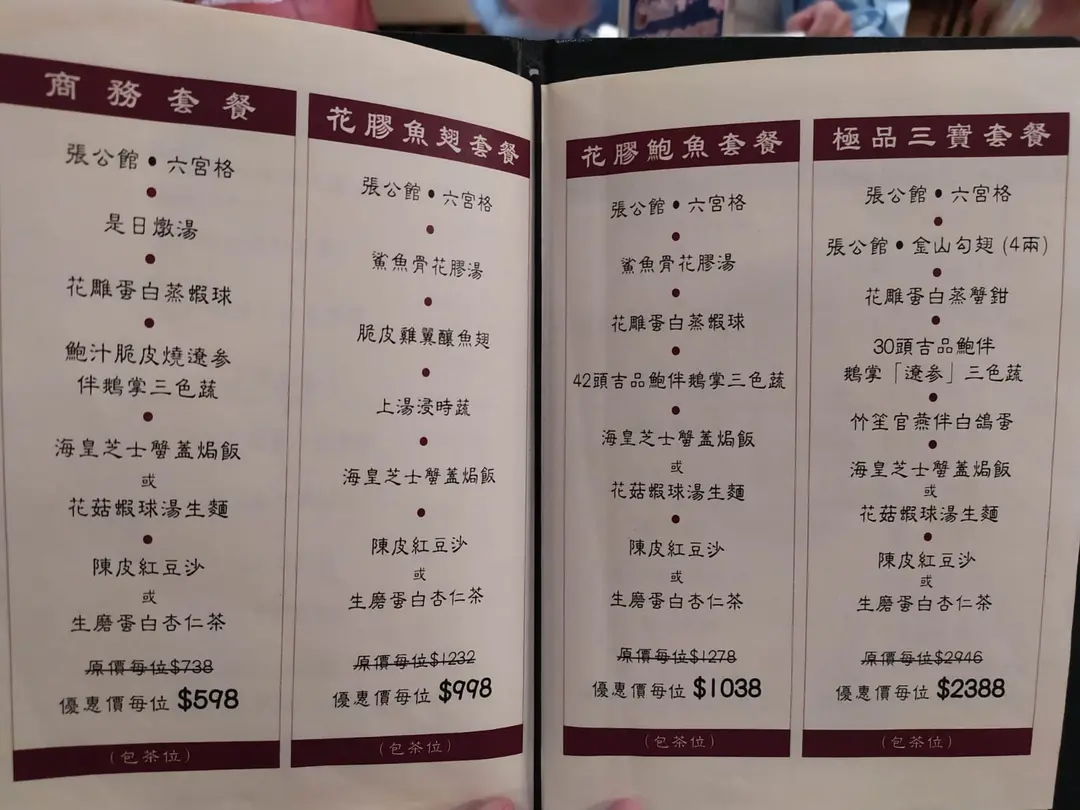 商務套餐
張公館•六宮格
是日燉湯
花雕蛋白蒸蝦球
鮑汁脆皮燒遼參
伴鵝掌三色蔬
海皇芝士蟹蓋焗飯
或
花菇蝦球湯生麵
陳皮紅豆沙
或
生磨蛋白杏仁茶
原價每位$738
優惠價每位 $598
(包茶位)
花膠魚翅套餐
張公館•六宮格
鯊魚骨花膠湯
脆皮雞翼釀魚翅
上湯浸時蔬
海皇芝士蟹蓋焗飯
陳皮紅豆沙
或
生磨蛋白杏仁茶
原價每位$1232
優惠價每位 $998
(包茶位)
花膠鮑魚套餐
張公館•六宮格
鯊魚骨花膠湯
花雕蛋白蒸蝦球
42頭吉品鮑伴鵝掌三色蔬
海皇芝士蟹蓋焗飯
或
花菇蝦球湯生麵
陳皮紅豆沙
或
生磨蛋白杏仁茶
原價每位$1278
優惠價每位 $1038
(包茶位)
極品三寶套餐
張公館•六宮格
張公館•金山勾翅 (4兩)
花雕蛋白蒸蟹鉗
30頭吉品鮑伴
鵝掌「遼參」三色蔬
竹笙官燕伴白鴿蛋
海皇芝士蟹蓋焗飯
或
花菇蝦球湯生麵
陳皮紅豆沙
或
生磨蛋白杏仁茶
原價每位$2946
優惠價每位 $2388
(包茶位)